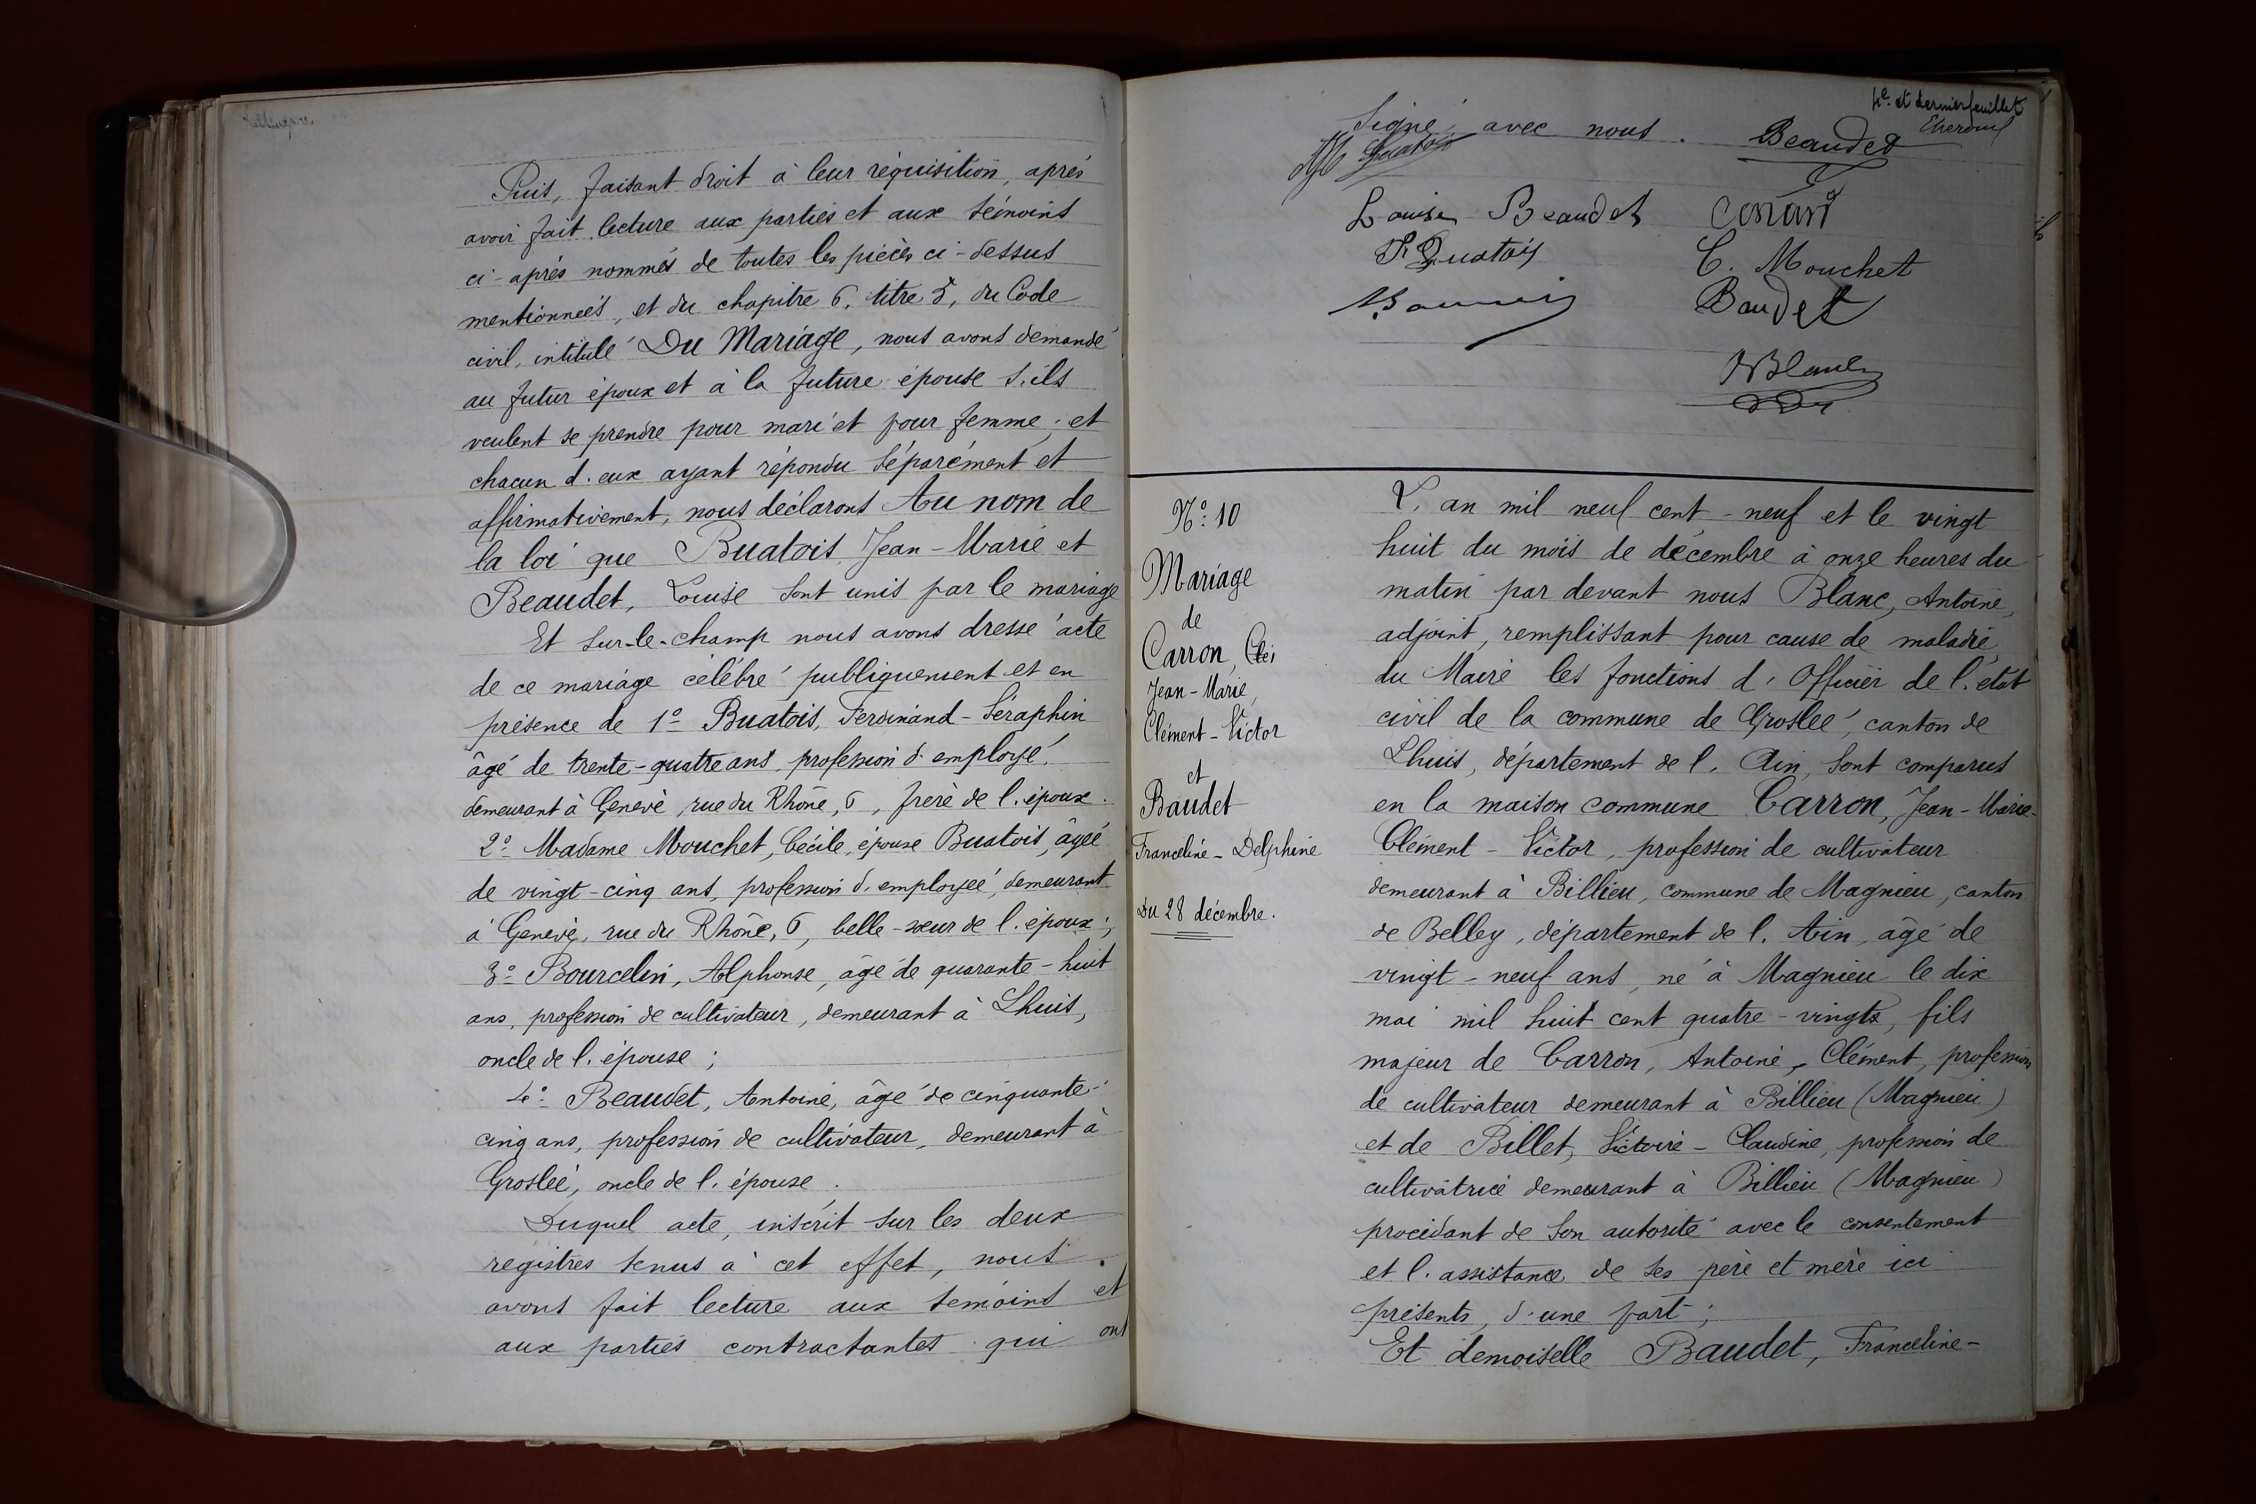 Puis, faisant droit à leur réquisition, après
avoir fait lecture aux parties et aux témoins
ci-après nommés de toutes les pièces ci-dessus
mentionnées, et du chapitre 6, titre 5, du Code
civil, intitulé Du Mariage, nous avons demandé
au futur époux et à la future épouse s'ils
veulent se prendre pour mari et pour femme; et
chacun d'eux ayant répondu séparément et
affirmativement, nous déclarons Au nom de
la loi que Buatois, Jean-Marie et
Beaudet, Louise sont unis par le mariage
Et sur-le-champ nous avons dressé acte
de ce mariage célébré publiquement et en
présence de 1º Buatois, Ferdinand-Séraphin
âgé de trente-quatre ans, profession d'employé,
demeurant à Genève, rue du Rhône, 6, frère de l'époux.
2º Madame Mouchet, Cécile, épouse Buatois, âgée
de vingt-cinq ans, profession d'employée, demeurant
à Genève, rue du Rhône, 6, belle-sœur de l'époux;
3º Bourcelin, Alphonse, âgé de quarante-huit
ans, profession de cultivateur, demeurant à Lhuis,
oncle de l'épouse;
4º Beaudet, Antoine, âgé de cinquante-
cinq ans, profession de cultivateur, demeurant à
Groslée, oncle de l'épouse.
Duquel acte, inscrit sur les deux
registres tenus à cet effet, nous
avons fait lecture aux témoins et
aux parties contractantes qui ont
4e et dernier feuillet
signé avec nous. Beaudet
Louise Beaudet
F Buatois
C. Mouchet
Baudet
Blanc
Nº 10
Mariage
de
Carron, Clé
Jean-Marie,
Clément-Victor
et
Baudet
Franceline-Delphine
Du 28 décembre.
L'an mil neuf cent-neuf et le vingt
huit du mois de décembre à onze heures du
matin par devant nous Blanc, Antoine,
adjoint, remplissant pour cause de maladie
du Maire les fonctions d'Officier de l'état
civil de la commune de Groslée, canton de
Lhuis, département de l'Ain, sont comparus
en la maison commune Carron, Jean-Marie-
Clément-Victor, profession de cultivateur
demeurant à Billieu, commune de Magnieu, canton
de Belley, département de l'Ain, âgé de
vingt-neuf ans, né à Magnieu le dix
mai mil huit cent quatre-vingts, fils
majeur de Carron, Antoine, Clément, profession
de cultivateur demeurant à Billieu (Magnieu)
et de Billet, Victoire-Claudine, profession de
cultivatrice demeurant à Billieu (Magnieu)
procédant de son autorité avec le consentement
et l'assistance de ses père et mère ici
présents, d'une part;
Et demoiselle Baudet, Franceline-